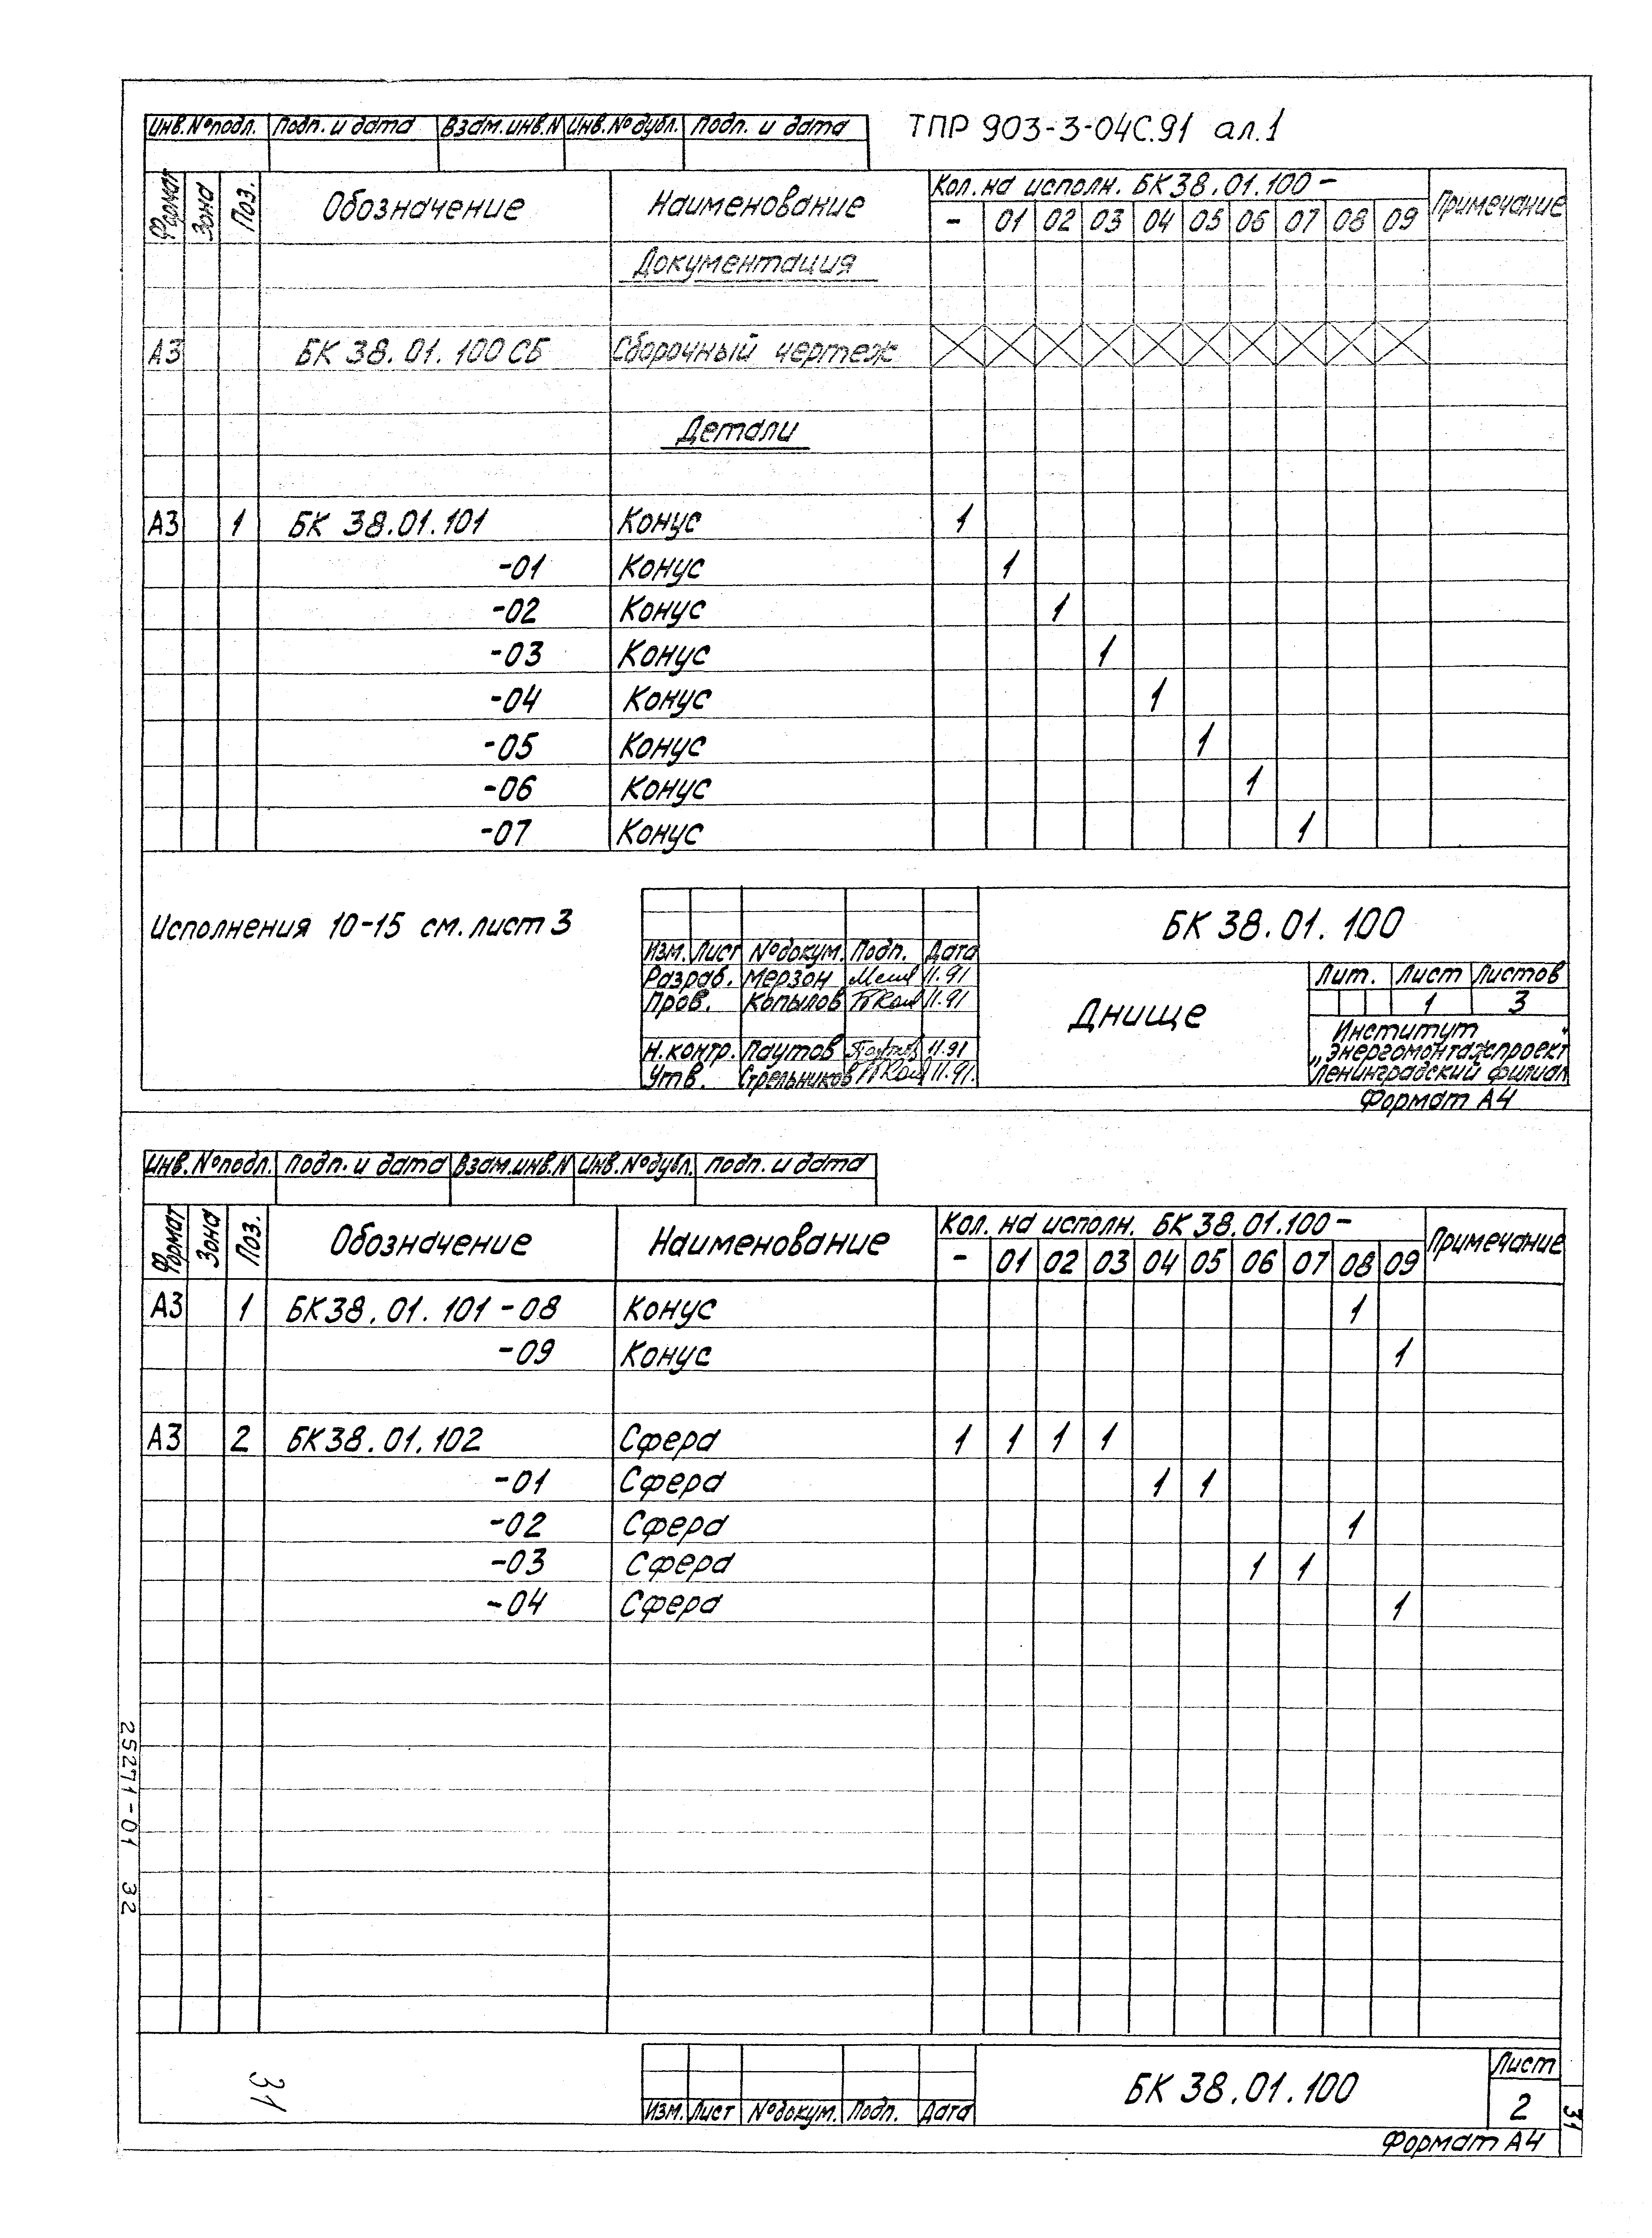 Инв.№подл. Подп. и дата Взам.инв.N Инв.№дубл. Подп. и дата ТПР 903-3-04С.91 ал.1
Формат Зона Поз. Обозначение Наименование Кол. на исполн. БК38.01.100 – Примечание
– 01 02 03 04 05 06 07 08 09
Документация
А3 БК 38.01.100 СБ Сборочный чертеж
Детали
А3 1 БК 38.01.101 Конус 1
-01 Конус 1
-02 Конус 1
-03 Конус 1
-04 Конус 1
-05 Конус 1
-06 Конус 1
-07 Конус 1
Исполнения 10-15 см. лист 3
БК 38.01.100
Изм. Лист №докум. Подп. Дата
Разраб. Мерзон 11.91
Пров. Копылов 11.91
Н.контр. Паутов 11.91
Утв. Стрельников 11.91.
Днище
Лит. Лист Листов
1 3
Институт
„Энергомонтажпроект"
Ленинградский филиал
Формат А4
Инв.№подл. Подп. и дата Взам.инв.N Инв.№дубл. Подп. и дата
Формат Зона Поз. Обозначение Наименование Кол. на исполн. БК 38.01.100 – Примечание
– 01 02 03 04 05 06 07 08 09
А3 1 БК38.01.101-08 Конус 1
-09 Конус 1
А3 2 БК38.01.102 Сфера 1 1 1 1
-01 Сфера 1 1
-02 Сфера 1
-03 Сфера 1 1
-04 Сфера 1
25271-01 32
31
Изм. Лист №докум. Подп. Дата
БК 38.01.100
Лист
2
31
Формат А4